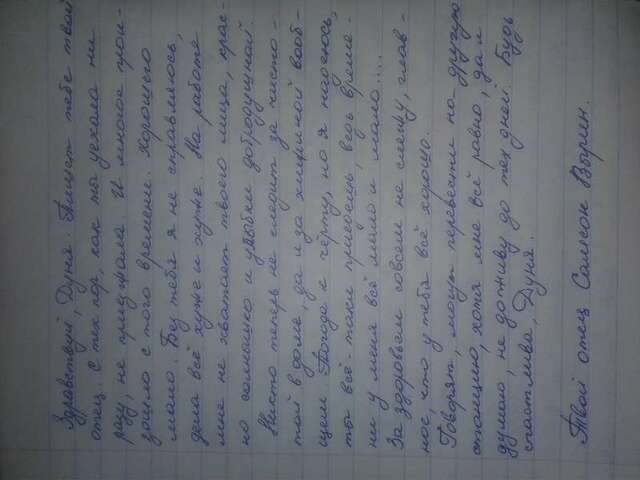 Здравствуй, Дуня. Пишет тебе твой
отец. С тех пор, как ты уехала ни
разу, не приезжала. И многое прои-
зошло с того времени. Хорошего
мало. Без тебя я не справляюсь,
дела всё хуже и хуже. На работе
мне не хватает твоего лица, крас-
но солнышко и улыбки добродушной.
Никто теперь не следит за чисто-
той в доме, да и за хижиной вооб-
щем. Погода к чёрту, но я надеюсь,
ты всё-таки приедешь, ведь време-
ни у меня всё мало и мало....
За здоровьем совсем не слежу, глав-
ное, что у тебя всё хорошо.
Говорят, могут перевести на другую
станцию, хотя мне всё равно, да и
думаю, не доживу до тех дней. Будь
счастлива, Дуня.
Твой отец Самсон Вырин.